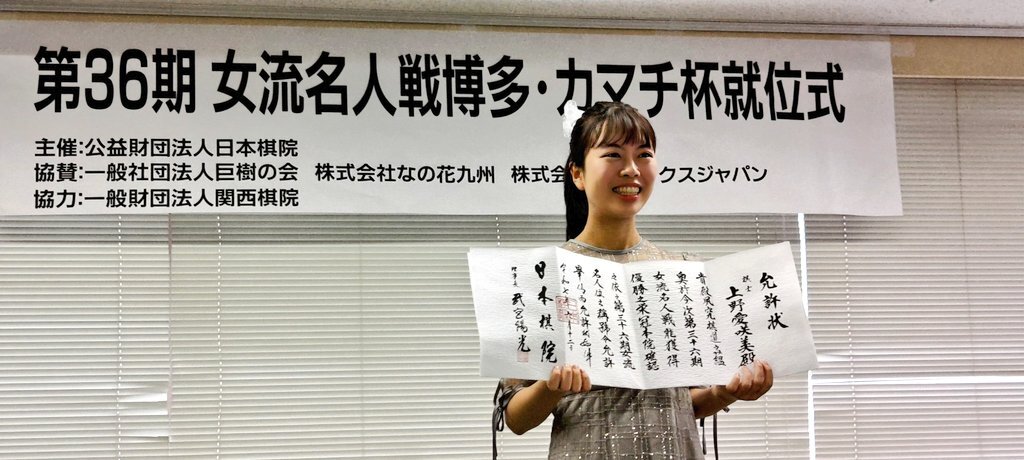 第36期 女流名人戦博多・カマチ杯就位式
主催:公益財団法人日本棋院
協賛:一般社団法人巨樹の会 株式会社なの花九州 株式会 クスジャパン
協力:一般財団法人関西棋院
允許状
棋士 上野愛咲美殿
奥於今次第三十六期
女流名人戦能獲得
優勝之栄冠本院確認
第三十六期女流
名人位之称号令允許
日本棋院
理事長 武宮陽光